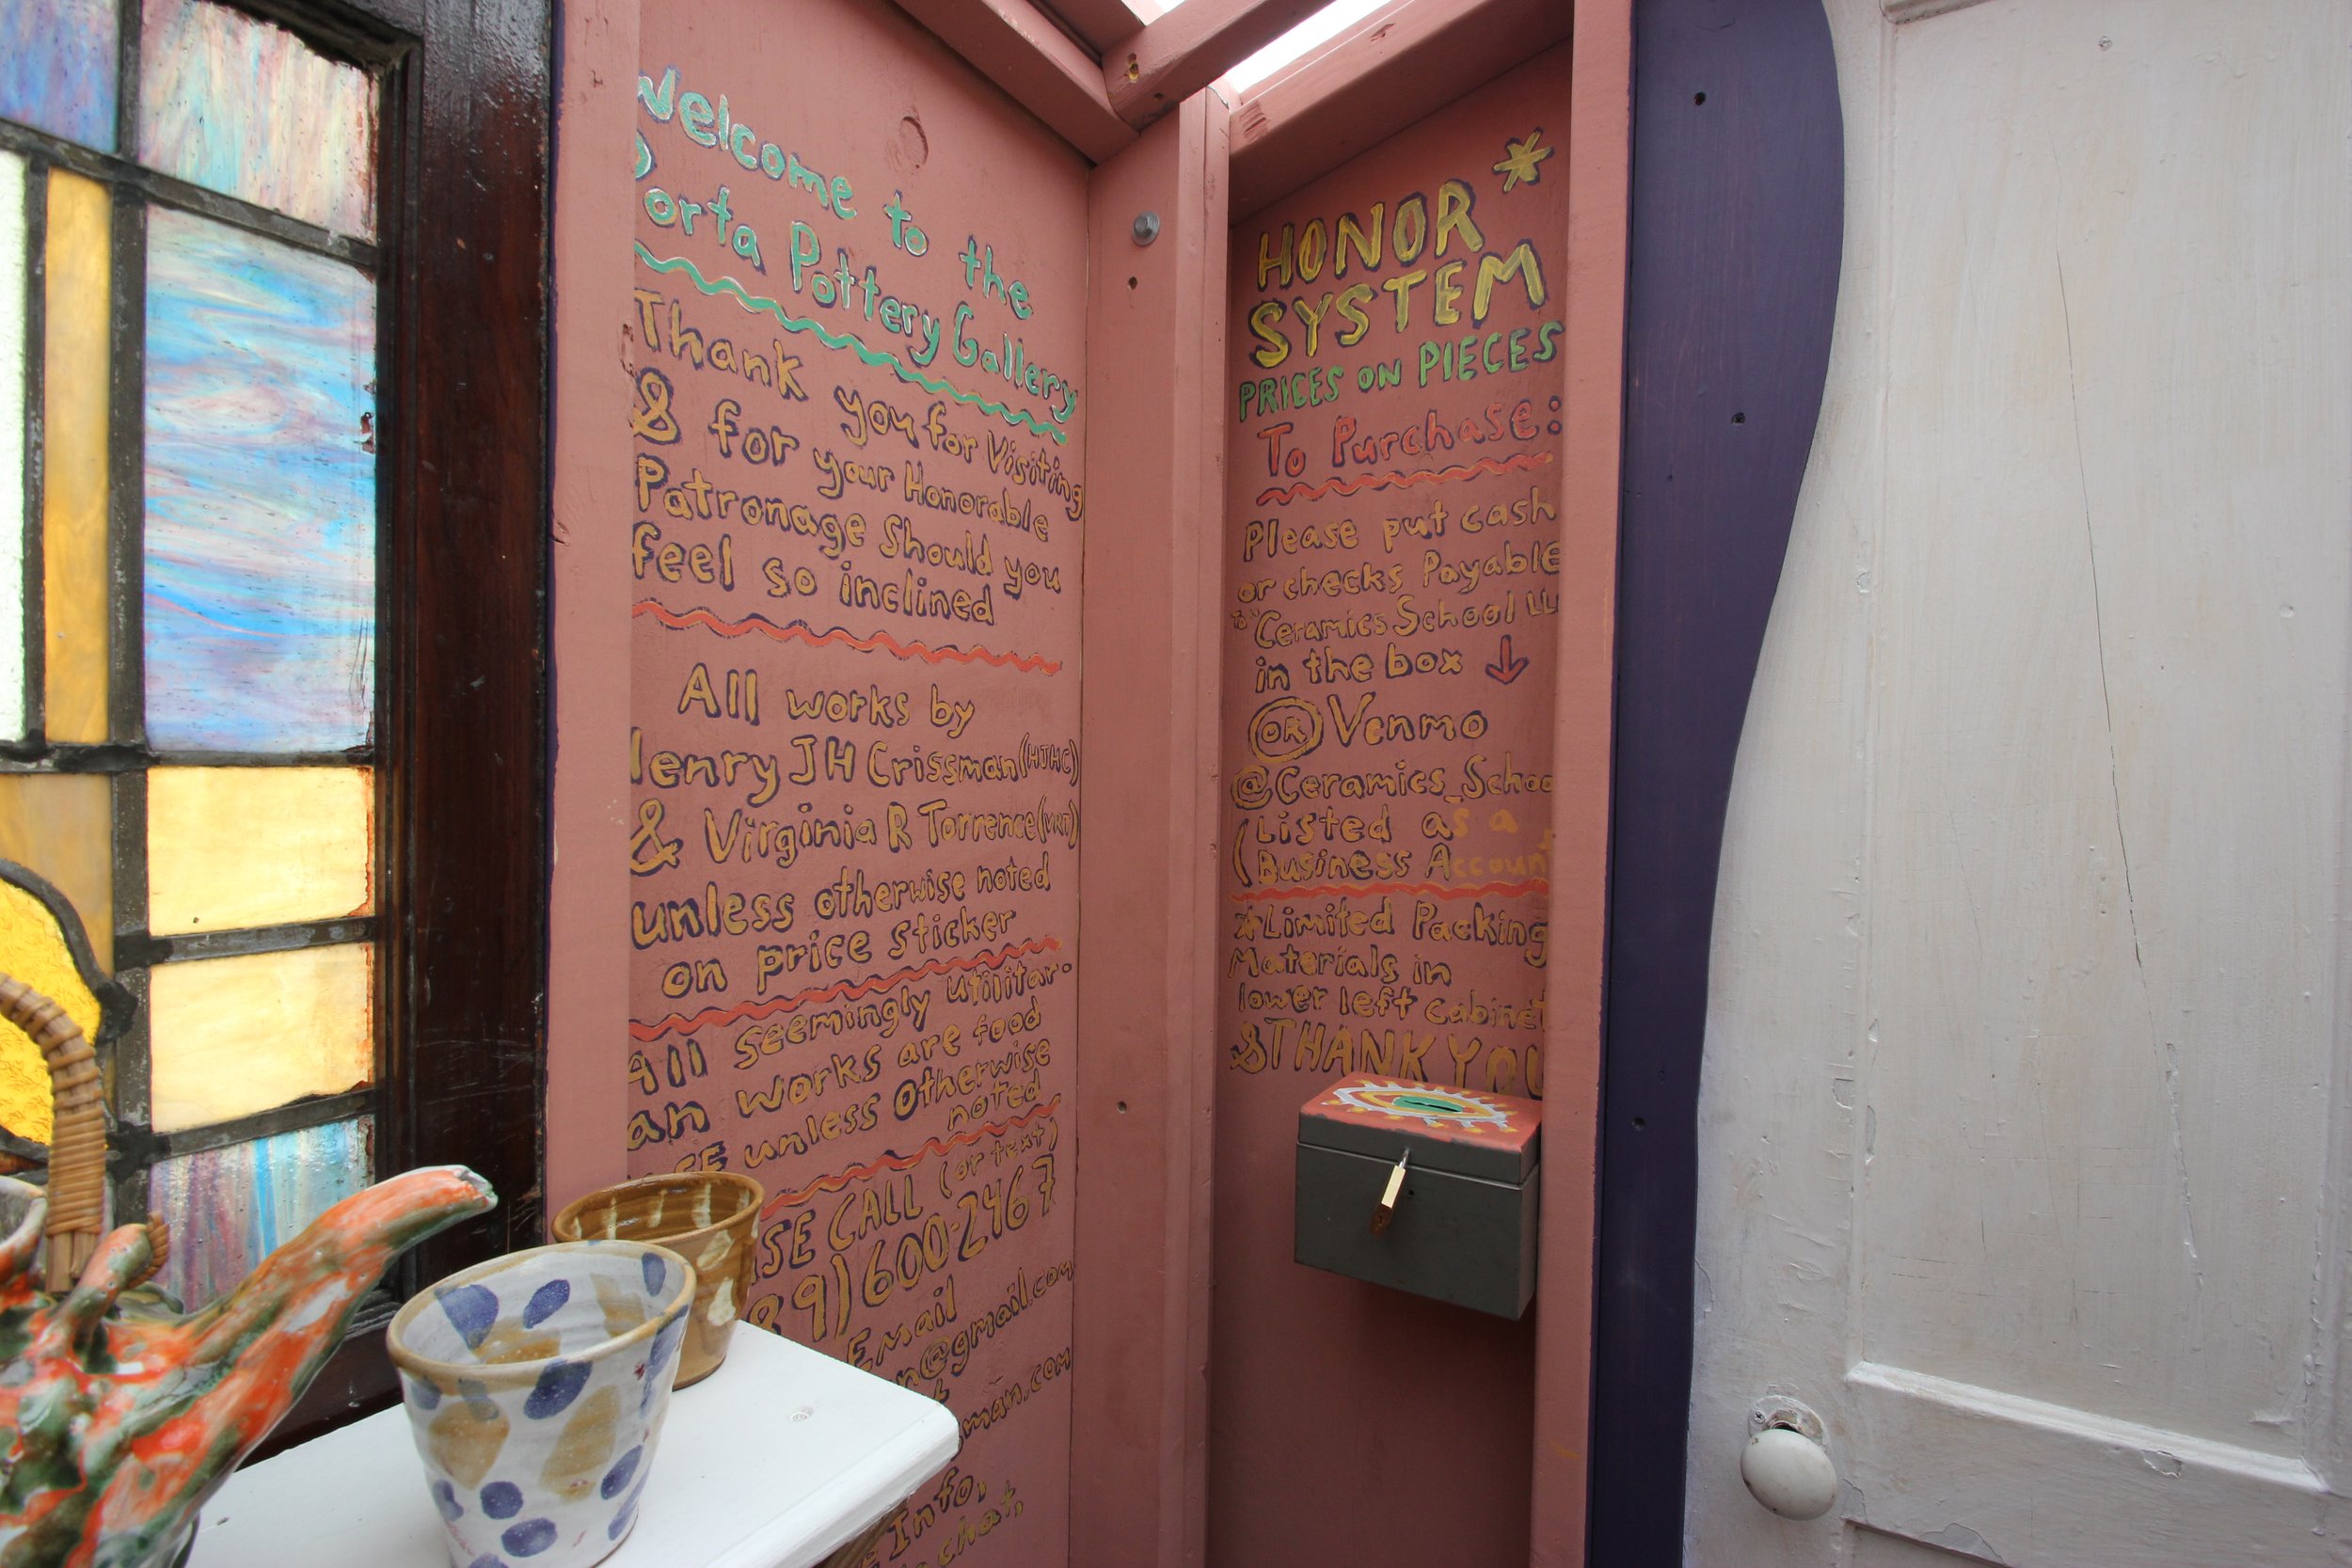 Welcome to the
Porta Pottery Gallery
Thank you for Visiting
& for your Honorable
Patronage Should you
feel so inclined
All works by
Henry JH Crissman (HJHC)
& Virginia R Torrence (VRT)
unless otherwise noted
on price sticker
All seemingly utilitar-
ian works are food
unless otherwise
noted
CALL (or text)
89) 600-2467
Email
n@gmail.com
man.com
Info,
chat,
HONOR *
SYSTEM
PRICES ON PIECES
To Purchase:
Please put cash
or checks Payable
to "Ceramics School LL
in the box ↓
OR Venmo
@Ceramics_Schoo
(Listed as a
(Business Account
*Limited Packing
Materials in
lower left cabinet
& THANK YOU